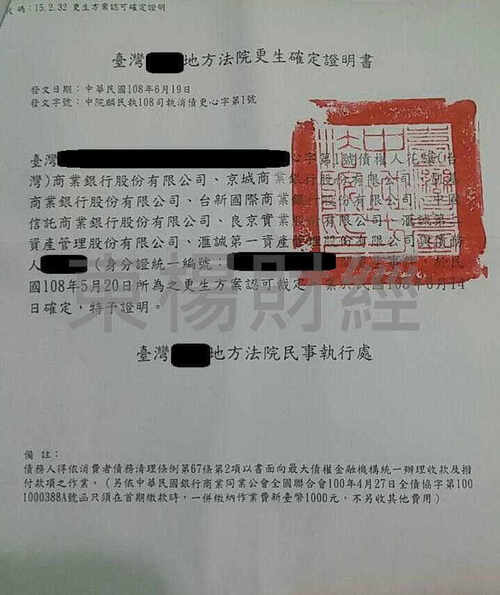 代碼:15.2.32 更生方案認可確定證明
臺灣 地方法院更生確定證明書
發文日期:中華民國108年6月19日
發文字號:中院麟民執108司執消債更心字第1號
臺灣 心字第 號債權人花旗(台
灣)商業銀行股份有限公司、京城商業銀行股份有限公司、
商業銀行股份有限公司、台新國際商業銀行股份有限公司、中國
信託商業銀行股份有限公司、良京實業股份有限公司、滙誠第二
資產管理股份有限公司、滙誠第一資產管理股份有限公司與債務
人 (身分證統一編號: 事件,於民
國108年5月20日所為之更生方案認可裁定,業於民國108年6月14
日確定,特予證明。
東楊財經
臺灣 地方法院民事執行處
備註:
債務人得依消費者債務清理條例第67條第2項以書面向最大債權金融機構統一辦理收款及撥
付款項之作業。(另依中華民國銀行商業同業公會全國聯合會100年4月27日全債協字第100
1000388A號函只須在首期繳款時,一併繳納作業費新臺幣1000元,不另收其他費用)